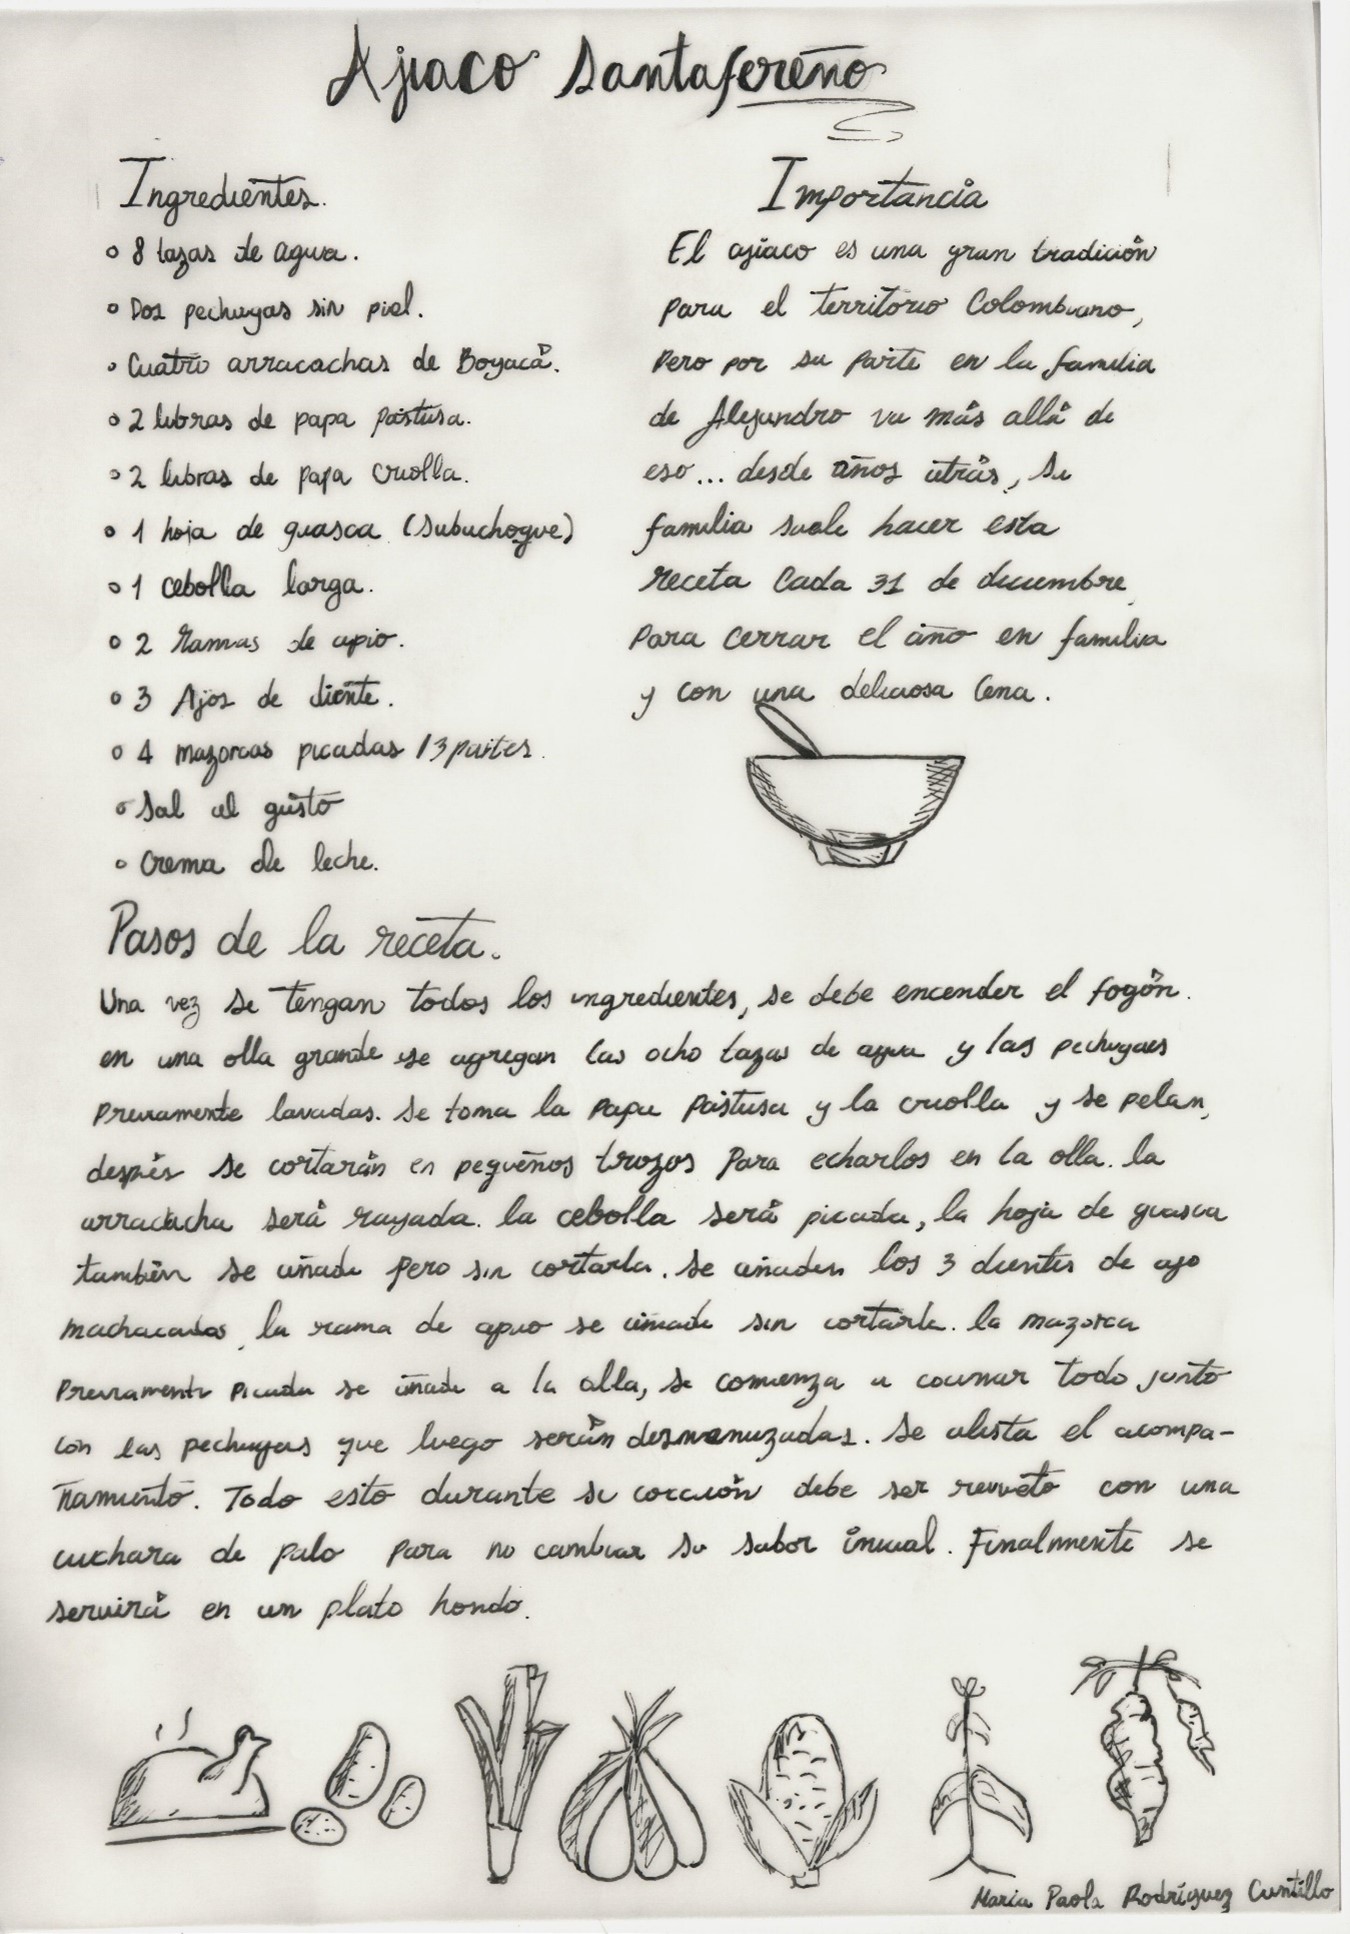 Ajiaco Santafereño
Ingredientes.
8 tazas de agua.
Dos pechugas sin piel.
Cuatro arracachas de Boyacá.
2 libras de papa pastusa.
2 libras de papa criolla.
1 hoja de guasca (subuchoque)
1 cebolla larga.
2 Ramas de apio.
3 Ajos de diente.
4 mazorcas picadas /3 partes.
Sal al gusto
Crema de leche.
Importancia
El ajiaco es una gran tradición
para el territorio Colombiano,
pero por su parte en la familia
de Alejandro va más allá de
eso... desde años atrás, su
familia suele hacer esta
receta cada 31 de diciembre,
para cerrar el año en familia
y con una deliciosa Cena.
Pasos de la receta.
Una vez se tengan todos los ingredientes, se debe encender el fogón.
en una olla grande se agregan las ocho tazas de agua y las pechugas
previamente lavadas. Se toma la papa pastusa y la criolla y se pelan,
después se cortarán en pequeños trozos para echarlos en la olla. la
arracacha será rayada. la cebolla será picada, la hoja de guasca
también se añade pero sin cortarla. se añaden los 3 dientes de ajo
machacados, la rama de apio se añade sin cortarla. la mazorca
previamente picada se añade a la olla, se comienza a cocinar todo junto
con las pechugas que luego serán desmenuzadas. Se alista el acompa-
ñamiento. Todo esto durante su cocción debe ser revuelto con una
cuchara de palo para no cambiar su sabor inicial. Finalmente se
servirá en un plato hondo.
Maria Paola Rodríguez Cantillo